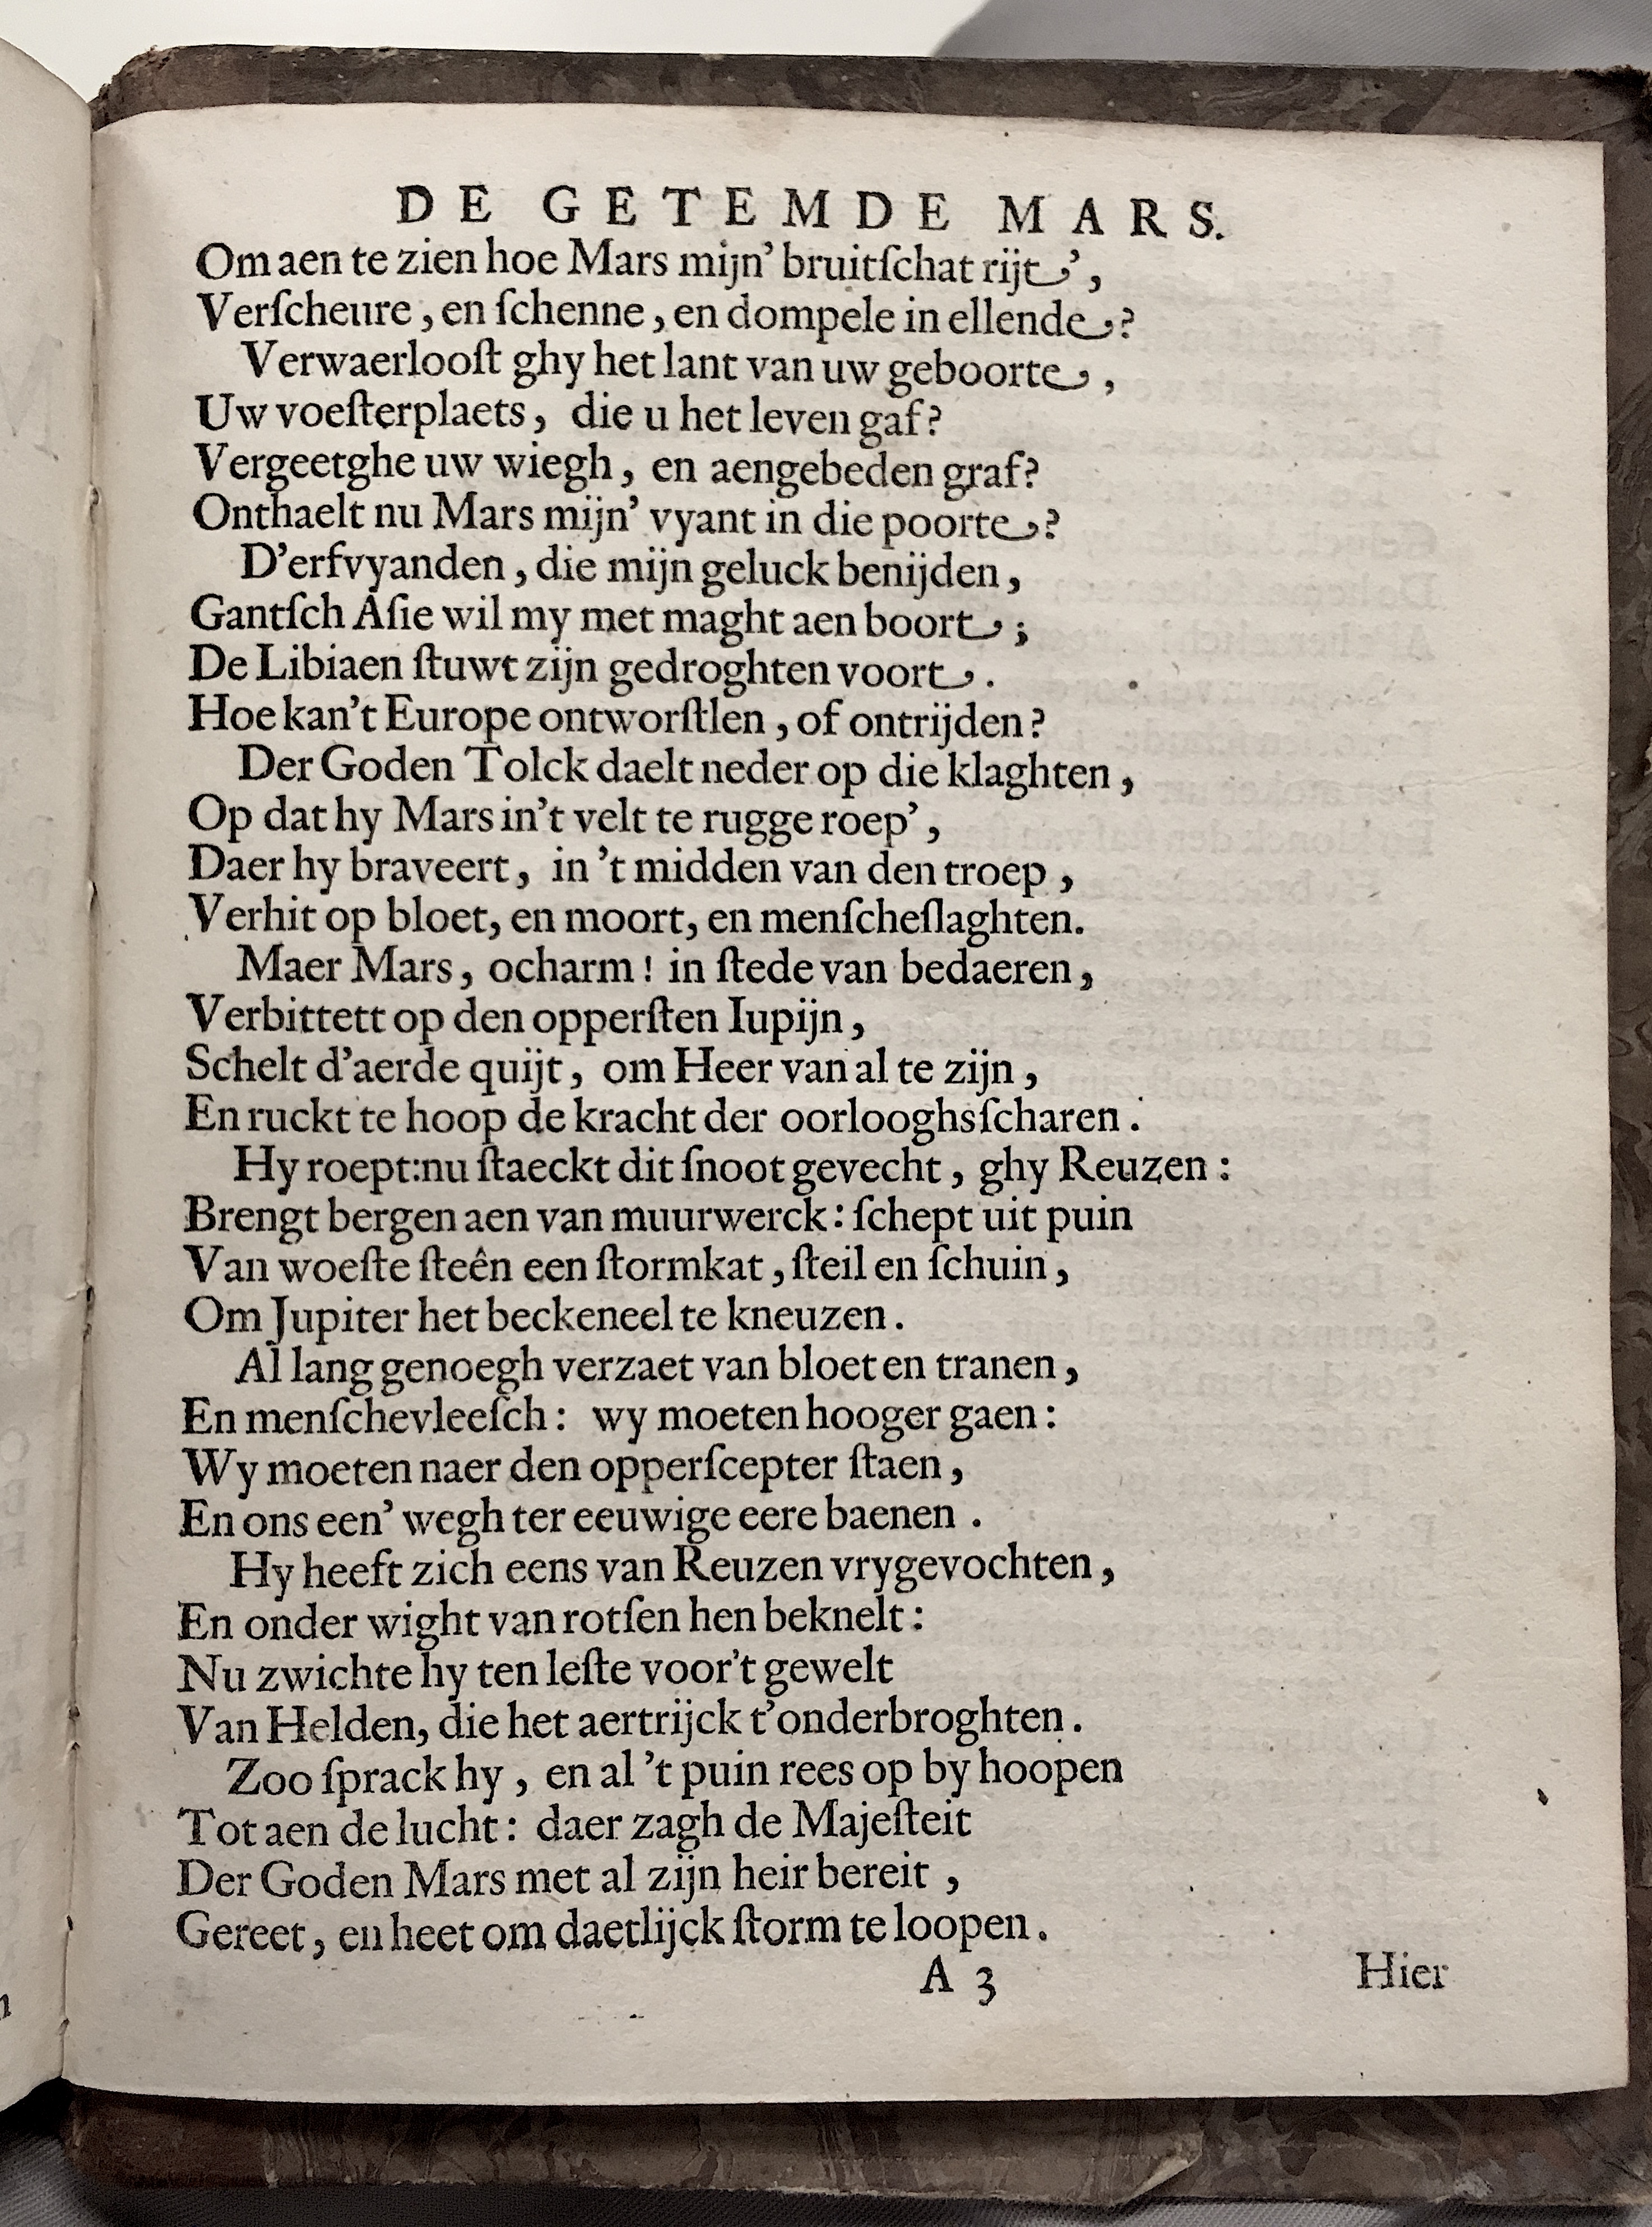 DE GETEMDE MARS.
Om aen te zien hoe Mars mijn’ bruitſchat rijt’,
Verſcheure, en ſchenne, en dompele in ellende?
Verwaerlooſt ghy het lant van uw geboorte,
Uw voeſterplaets, die u het leven gaf?
Vergeetghe uw wiegh, en aengebeden graf?
Onthaelt nu Mars mijn’ vyant in die poorte?
D’erfvyanden, die mijn geluck benijden,
Gantſch Aſie wil my met maght aen boort;
De Libiaen ſtuwt zijn gedroghten voort.
Hoe kan’t Europe ontworſtlen, of ontrijden?
Der Goden Tolck daelt neder op die klaghten,
Op dat hy Mars in’t velt te rugge roep’,
Daer hy braveert, in ’t midden van den troep,
Verhit op bloet, en moort, en menſcheſlaghten.
Maer Mars, ocharm! in ſtede van bedaeren,
Verbittett op den opperſten Iupijn,
Schelt d’aerde quijt, om Heer van al te zijn,
En ruckt te hoop de kracht der oorlooghsſcharen.
Hy roept:nu ſtaeckt dit ſnoot gevecht, ghy Reuzen:
Brengt bergen aen van muurwerck: ſchept uit puin
Van woeſte ſteên een ſtormkat, ſteil en ſchuin,
Om Jupiter het beckeneel te kneuzen.
Al lang genoegh verzaet van bloet en tranen,
En menſchevleeſch: wy moeten hooger gaen:
Wy moeten naer den opperſcepter ſtaen,
En ons een’ wegh ter eeuwige eere baenen.
Hy heeft zich eens van Reuzen vrygevochten,
En onder wight van rotſen hen beknelt:
Nu zwichte hy ten leſte voor’t gewelt
Van Helden, die het aertrijck t’onderbroghten.
Zoo ſprack hy, en al ’t puin rees op by hoopen
Tot aen de lucht: daer zagh de Majeſteit
Der Goden Mars met al zijn heir bereit,
Gereet, en heet om daetlijck ſtorm te loopen.
A 3 Hier